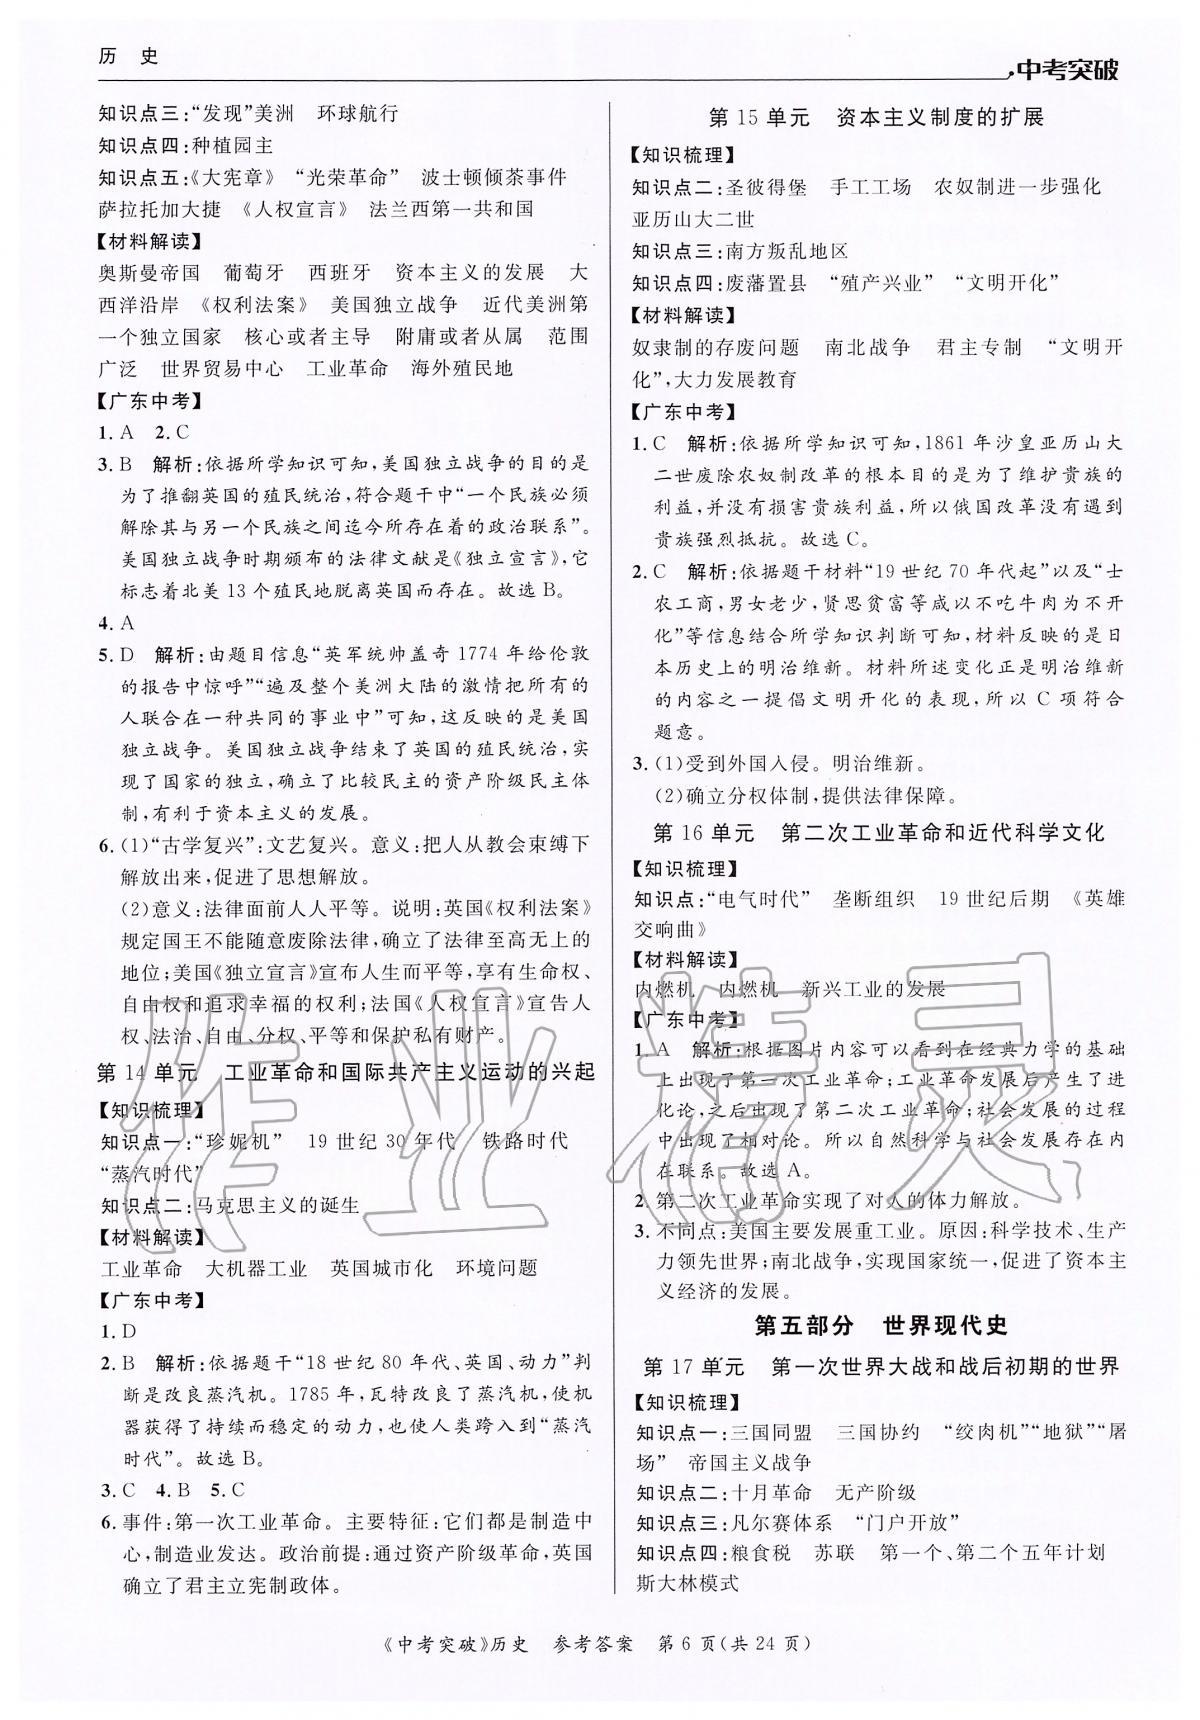 历 史
中考突破
知识点三:“发现”美洲 环球航行
知识点四:种植园主
知识点五:《大宪章》 “光荣革命” 波士顿倾茶事件
萨拉托加大捷 《人权宣言》 法兰西第一共和国
【材料解读】
奥斯曼帝国 葡萄牙 西班牙 资本主义的发展 大
西洋沿岸 《权利法案》 美国独立战争 近代美洲第
一个独立国家 核心或者主导 附庸或者从属 范围
广泛 世界贸易中心 工业革命 海外殖民地
【广东中考】
1. A 2. C
3. B 解析:依据所学知识可知,美国独立战争的目的是
为了推翻英国的殖民统治,符合题干中“一个民族必须
解除其与另一个民族之间迄今所存在着的政治联系”。
美国独立战争时期颁布的法律文献是《独立宣言》,它
标志着北美 13 个殖民地脱离英国而存在。故选 B。
4. A
5. D 解析:由题目信息“英军统帅盖奇 1774 年给伦敦
的报告中惊呼”“遍及整个美洲大陆的激情把所有的
人联合在一种共同的事业中”可知,这反映的是美国
独立战争。美国独立战争结束了英国的殖民统治,实
现了国家的独立,确立了比较民主的资产阶级民主体
制,有利于资本主义的发展。
6. (1)“古学复兴”:文艺复兴。意义:把人从教会束缚下
解放出来,促进了思想解放。
(2)意义:法律面前人人平等。说明:英国《权利法案》
规定国王不能随意废除法律,确立了法律至高无上的
地位;美国《独立宣言》宣布人生而平等,享有生命权、
自由权和追求幸福的权利;法国《人权宣言》宣告人
权、法治、自由、分权、平等和保护私有财产。
第 14 单元 工业革命和国际共产主义运动的兴起
【知识梳理】
知识点一:“珍妮机” 19 世纪 30 年代 铁路时代
“蒸汽时代”
知识点二:马克思主义的诞生
【材料解读】
工业革命 大机器工业 英国城市化 环境问题
【广东中考】
1. D
2. B 解析:依据题干“18 世纪 80 年代、英国、动力”判
断是改良蒸汽机。1785 年,瓦特改良了蒸汽机,使机
器获得了持续而稳定的动力,也使人类跨入到“蒸汽
时代”。故选 B。
3. C 4. B 5. C
6. 事件:第一次工业革命。主要特征:它们都是制造中
心,制造业发达。政治前提:通过资产阶级革命,英国
确立了君主立宪制政体。
第 15 单元 资本主义制度的扩展
【知识梳理】
知识点二:圣彼得堡 手工工场 农奴制进一步强化
亚历山大二世
知识点三:南方叛乱地区
知识点四:废藩置县 “殖产兴业” “文明开化”
【材料解读】
奴隶制的存废问题 南北战争 君主专制 “文明开
化”,大力发展教育
【广东中考】
1. C 解析:依据所学知识可知,1861 年沙皇亚历山大
二世废除农奴制改革的根本目的是为了维护贵族的
利益,并没有损害贵族利益,所以俄国改革没有遇到
贵族强烈抵抗。故选 C。
2. C 解析:依据题干材料“19 世纪 70 年代起”以及“士
农工商,男女老少,贤思贫富等咸以不吃牛肉为不开
化”等信息结合所学知识判断可知,材料反映的是日
本历史上的明治维新。材料所述变化正是明治维新
的内容之一提倡文明开化的表现,所以 C 项符合
题意。
3. (1)受到外国入侵。明治维新。
(2)确立分权体制,提供法律保障。
第 16 单元 第二次工业革命和近代科学文化
【知识梳理】
知识点:“电气时代” 垄断组织 19 世纪后期 《英雄
交响曲》
【材料解读】
内燃机 内燃机 新兴工业的发展
【广东中考】
1. A 解析:根据图片内容可以看到在经典力学的基础
上出现了第一次工业革命;工业革命发展后产生了进
化论,之后出现了第二次工业革命;社会发展的过程
中出现了相对论。所以自然科学与社会发展存在内
在联系。故选 A。
2. 第二次工业革命实现了对人的体力解放。
3. 不同点:美国主要发展重工业。原因:科学技术、生产
力领先世界;南北战争,实现国家统一,促进了资本主
义经济的发展。
第五部分 世界现代史
第 17 单元 第一次世界大战和战后初期的世界
【知识梳理】
知识点一:三国同盟 三国协约 “绞肉机”“地狱”“屠
场” 帝国主义战争
知识点二:十月革命 无产阶级
知识点三:凡尔赛体系 “门户开放”
知识点四:粮食税 苏联 第一个、第二个五年计划
斯大林模式
《中考突破》历史 参考答案 第 6 页(共 24 页)
作业精灵